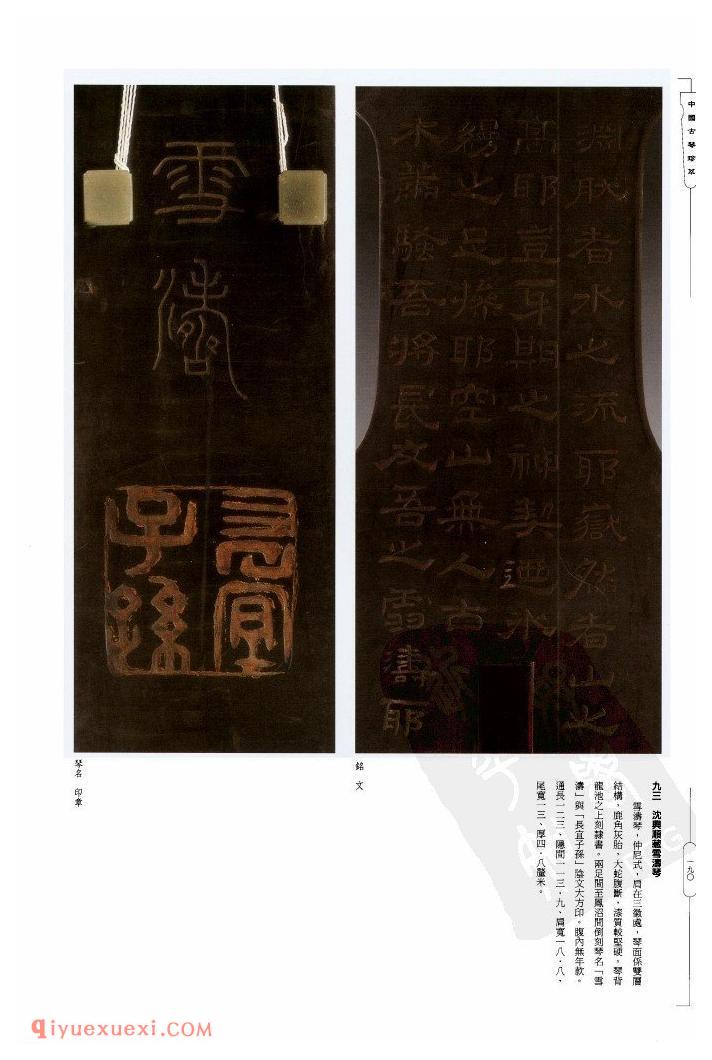 中國古琴珍萃
者水之流耶嶽然者山之
高耶豈牙期之神契迺水
之足耶空山無人古
木蕭騷吾將長友吾之雪濤耶
雪濤
長宜
子孫
銘文
琴名 印章
九三 沈興順藏雪濤琴
雪濤琴，仲尼式，肩在三徽處，琴面係雙層
結構，鹿角灰胎，大蛇腹斷，漆質較堅硬。琴背
龍池之上刻隸書。兩足間至鳳沼間倒刻琴名「雪
濤」與「長宜子孫」陰文大方印。腹內無年款。
通長一二三、隱間一一三·九、肩寬一八·八、
尾寬一三、厚四·八釐米。
一九〇
Qiyuexuexi.COM